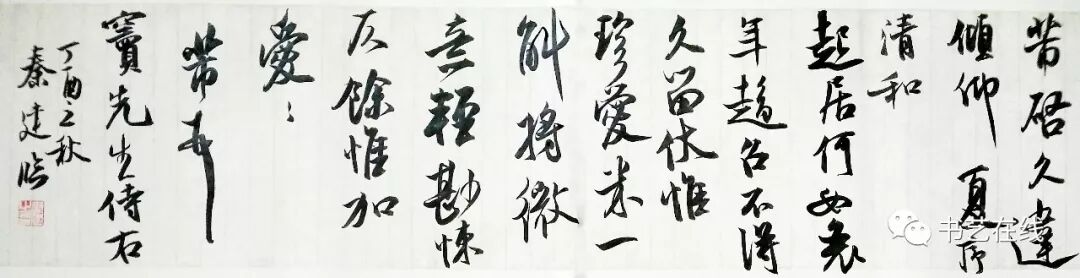 芾启久違
傾仰夏序
清和
起居何如衰
年趨召不得
久留伏惟
珍愛米一
斛將微
意輕尠悚
仄餘惟加
愛〻
芾再
竇先生侍右
丁酉之秋
秦建臨
书艺在线